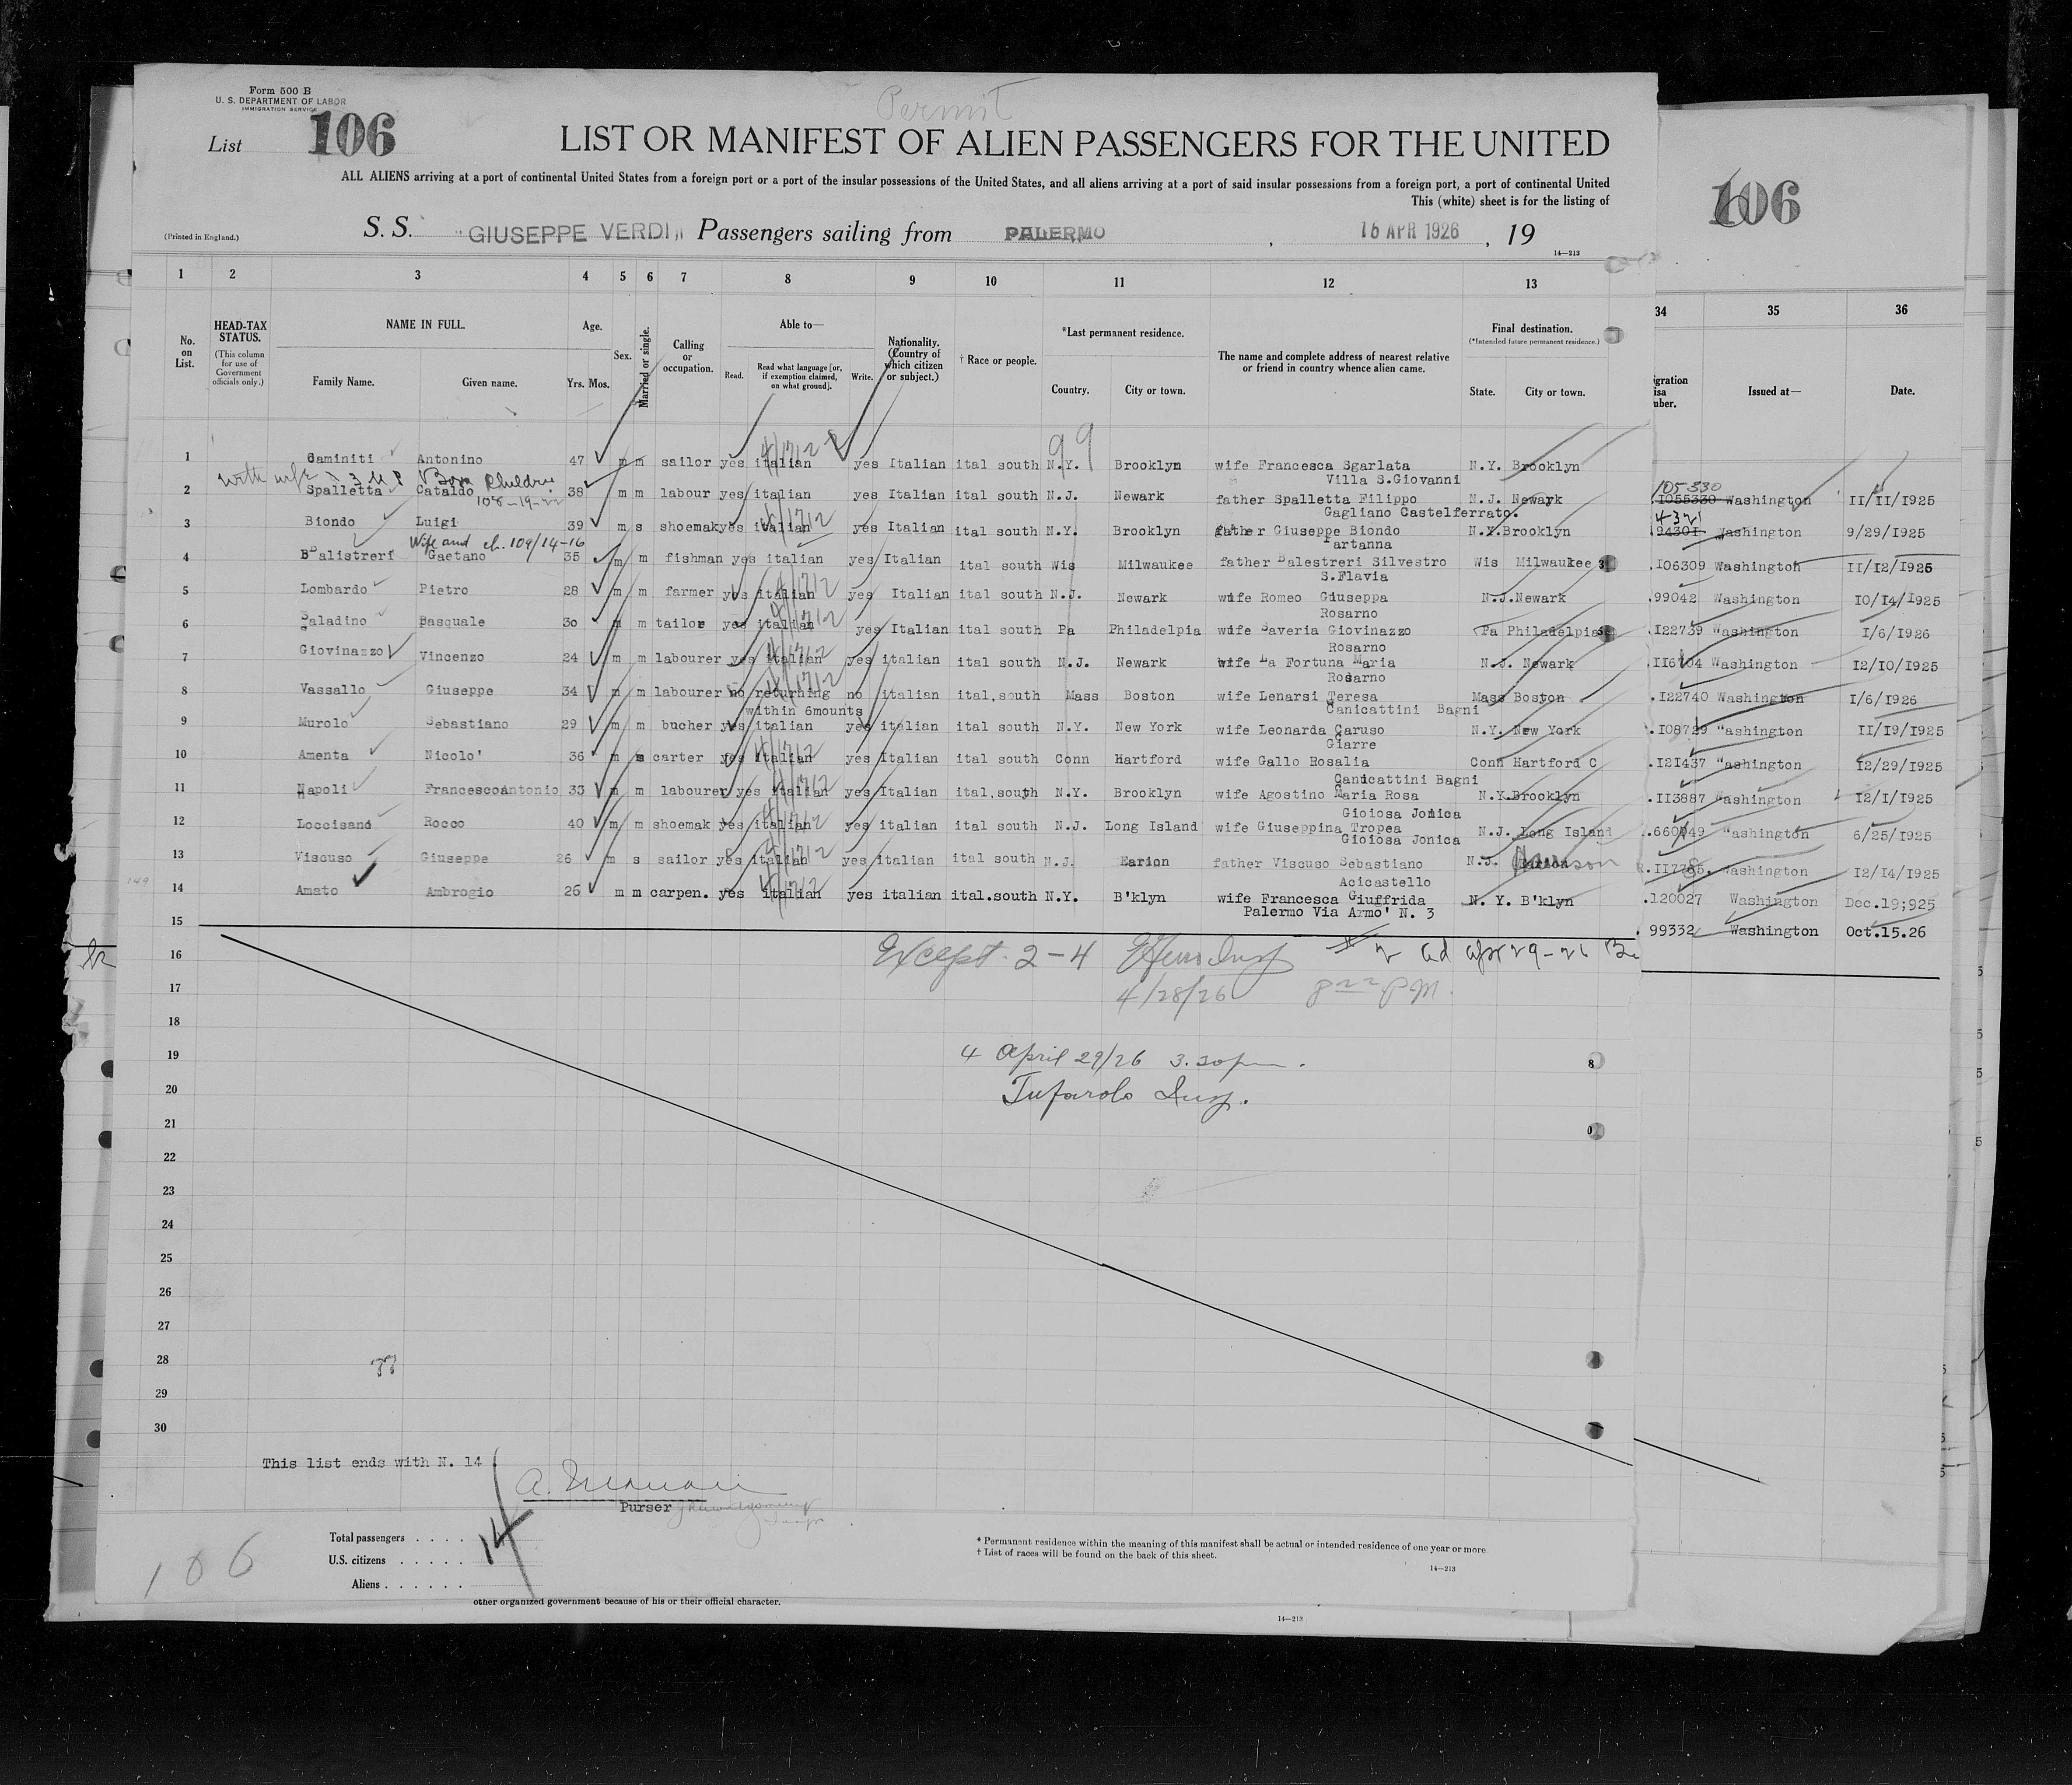 Form 500 B
U. S. DEPARTMENT OF LABOR
IMMIGRATION SERVICE
Permit
List 106
LIST OR MANIFEST OF ALIEN PASSENGERS FOR THE UNITED
ALL ALIENS arriving at a port of continental United States from a foreign port or a port of the insular possessions of the United States, and all aliens arriving at a port of said insular possessions from a foreign port, a port of continental United
This (white) sheet is for the listing of
106
(Printed in England.)
S. S. "GIUSEPPE VERDI" Passengers sailing from PALERMO , 16 APR 1926 , 19
14—213
1 2 3 4 5 6 7 8 9 10 11 12 13 34 35 36
No. on List.
HEAD-TAX STATUS.
(This column for use of Government officials only.)
NAME IN FULL.
Family Name. Given name.
Age.
Yrs. Mos.
Sex.
Married or single.
Calling or occupation.
Able to—
Read. Read what language [or, if exemption claimed, on what ground]. Write.
Nationality. (Country of which citizen or subject.)
† Race or people.
*Last permanent residence.
Country. City or town.
The name and complete address of nearest relative or friend in country whence alien came.
Final destination.
(*Intended future permanent residence.)
State. City or town.
igration
isa
mber.
Issued at—
Date.
99
1 Caminiti Antonino 47 m m sailor yes italian yes Italian ital south N.Y. Brooklyn wife Francesca Sgarlata N.Y. Brooklyn
Villa S.Giovanni
108-19-22
105330
2 Spalletta Cataldo 38 m m labour yes italian yes Italian ital south N.J. Newark father Spalletta Filippo N.J. Newark .1055330 Washington 11/11/1925
Gagliano Castelferrato.
4321
3 Biondo Luigi 39 m s shoemak yes italian yes Italian ital south N.Y. Brooklyn father Giuseppe Biondo N.Y.Brooklyn .94301 Washington 9/29/1925
Partanna
Wife and ch. 109/14-16
4 Balistreri Gaetano 35 m m fishman yes italian yes Italian ital south Wis Milwaukee father Balestreri Silvestro Wis Milwaukee 3 .106309 Washington 11/12/1925
S.Flavia
5 Lombardo Pietro 28 m m farmer yes italian yes Italian ital south N.J. Newark wife Romeo Giuseppa N.J.Newark .99042 Washington 10/14/1925
Rosarno
6 Saladino Pasquale 30 m m tailor yes italian yes Italian ital south Pa Philadelpia wife Saveria Giovinazzo Pa Philadelpia .122739 Washington 1/6/1926
Rosarno
7 Giovinazzo Vincenzo 24 m m labourer yes italian yes italian ital south N.J. Newark wife La Fortuna Maria N.J. Newark .116704 Washington 12/10/1925
Rosarno
8 Vassallo Giuseppe 34 m m labourer no returning no italian ital,south Mass Boston wife Lenarsi Teresa Mass Boston .122740 Washington 1/6/1926
within 6mounts Canicattini Bagni
9 Murolo Sebastiano 29 m m bucher yes italian yes italian ital south N.Y. New York wife Leonarda Caruso N.Y. New York .108729 Washington 11/19/1925
Giarre
10 Amenta Nicolo' 36 m m carter yes italian yes Italian ital south Conn Hartford wife Gallo Rosalia Conn Hartford C .121437 Washington 12/29/1925
Canicattini Bagni
11 Napoli Francescoantonio 33 m m labourer yes italian yes Italian ital,south N.Y. Brooklyn wife Agostino Maria Rosa N.Y.Brooklyn .113887 Washington 12/1/1925
Gioiosa Jonica
12 Loccisano Rocco 40 m m shoemak yes italian yes italian ital south N.J. Long Island wife Giuseppina Tropea N.J. Long Island .660949 Washington 6/25/1925
Gioiosa Jonica
13 Viscuso Giuseppe 26 m s sailor yes italian yes italian ital south N.J. Earion father Viscuso Sebastiano N.J. Washington 12/14/1925
Acicastello
149
14 Amato Ambrogio 26 m m carpen. yes italian yes italian ital.south N.Y. B'klyn wife Francesca Giuffrida N. Y. B'klyn .120027 Washington Dec.19;925
Palermo Via Armo' N. 3
15 . 99332 Washington Oct.15.26
16 Except. 2-4 2 ad apr 29-26
17 4/28/26 8 PM.
18
19 4 April 29/26 3.30pm.
20 Tufarolo Insp.
21
22
23
24
25
26
27
28
29
30
This list ends with N. 14
Purser
Total passengers . . . . 14
U.S. citizens . . . . .
Aliens . . . . . .
106
* Permanent residence within the meaning of this manifest shall be actual or intended residence of one year or more
† List of races will be found on the back of this sheet.
14—213
other organized government because of his or their official character.
14—213